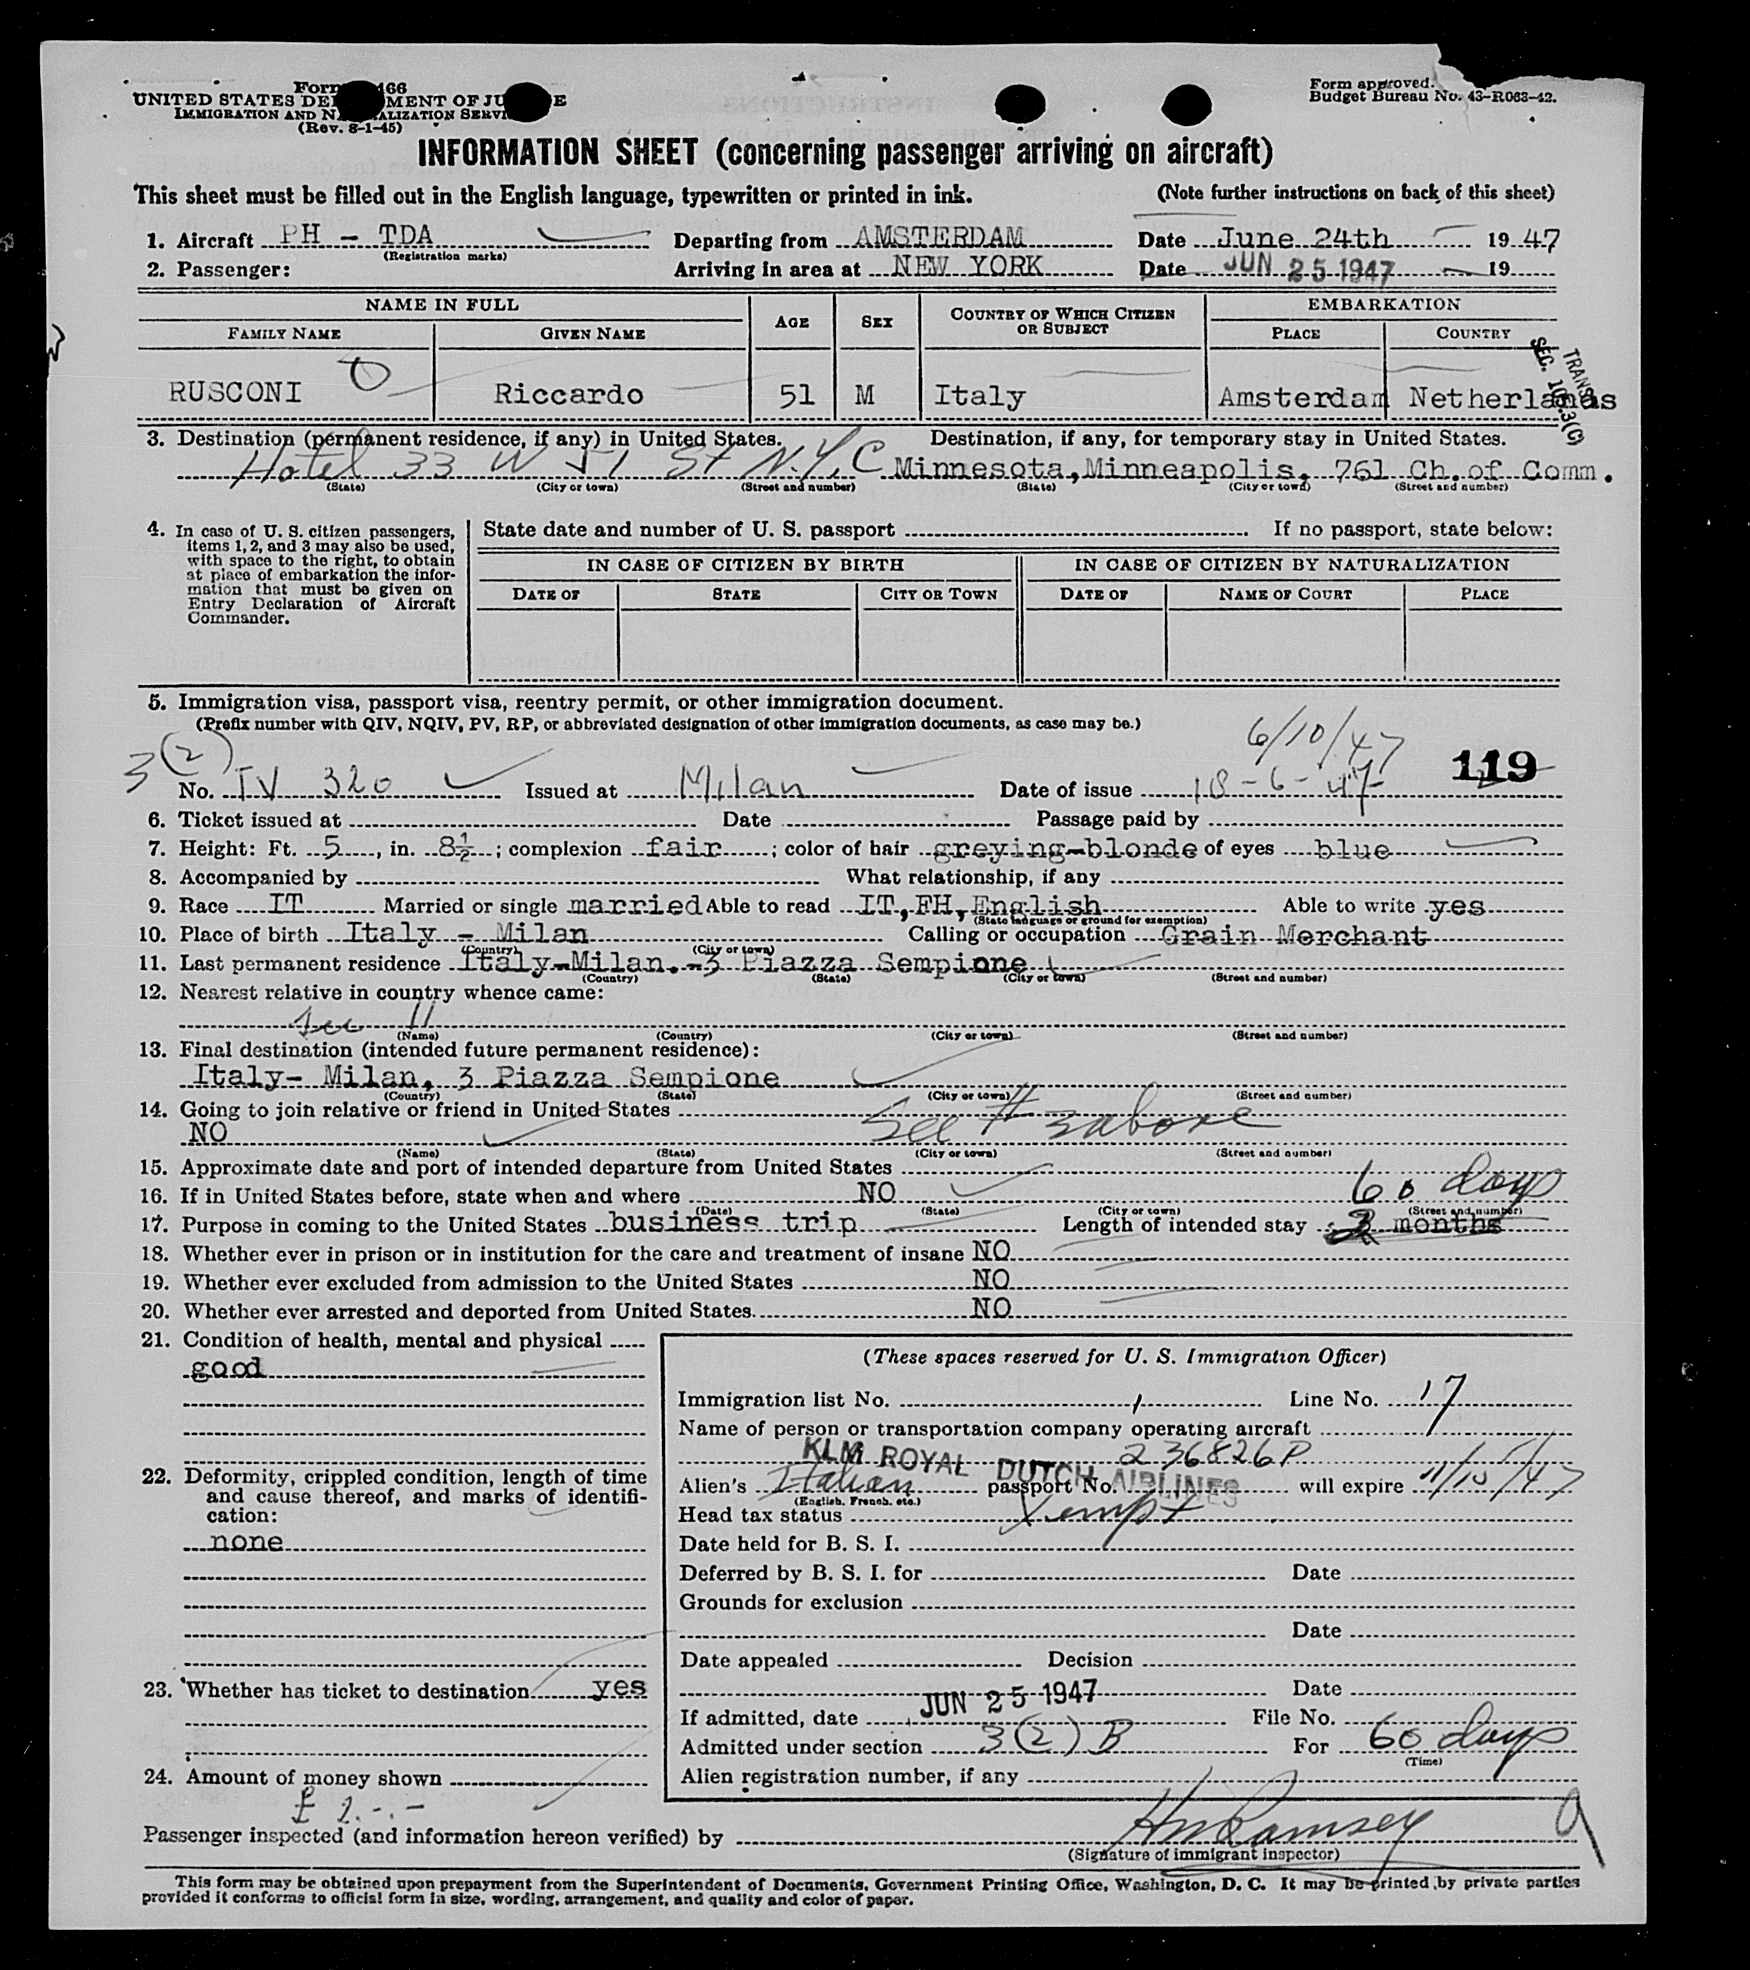 Form 466
UNITED STATES DEPARTMENT OF JUSTICE
IMMIGRATION AND NATURALIZATION SERVICE
(Rev. 8-1-45)
Form approved.
Budget Bureau No. 43-R063-42.
INFORMATION SHEET (concerning passenger arriving on aircraft)
This sheet must be filled out in the English language, typewritten or printed in ink. (Note further instructions on back of this sheet)
1. Aircraft PH - TDA Departing from AMSTERDAM Date June 24th 1947
(Registration marks)
2. Passenger: Arriving in area at NEW YORK Date JUN 25 1947 19
NAME IN FULL AGE SEX COUNTRY OF WHICH CITIZEN OR SUBJECT EMBARKATION
FAMILY NAME GIVEN NAME PLACE COUNTRY
TRANS. SEC. 103.3(C)
RUSCONI Riccardo 51 M Italy Amsterdam Netherlands
3. Destination (permanent residence, if any) in United States. Destination, if any, for temporary stay in United States.
Hotel 33 W 51 St N.Y.C Minnesota, Minneapolis, 761 Ch. of Comm.
(State) (City or town) (Street and number) (State) (City or town) (Street and number)
4. In case of U. S. citizen passengers, items 1, 2, and 3 may also be used, with space to the right, to obtain at place of embarkation the information that must be given on Entry Declaration of Aircraft Commander.
State date and number of U. S. passport If no passport, state below:
IN CASE OF CITIZEN BY BIRTH IN CASE OF CITIZEN BY NATURALIZATION
DATE OF STATE CITY OR TOWN DATE OF NAME OF COURT PLACE
5. Immigration visa, passport visa, reentry permit, or other immigration document.
(Prefix number with QIV, NQIV, PV, RP, or abbreviated designation of other immigration documents, as case may be.)
3(2) 6/10/47 119
No. TV 320 Issued at Milan Date of issue 18-6-47
6. Ticket issued at Date Passage paid by
7. Height: Ft. 5, in. 8½; complexion fair; color of hair greying-blonde of eyes blue
8. Accompanied by What relationship, if any
9. Race IT Married or single married Able to read IT, FH, English Able to write yes
(State language or ground for exemption)
10. Place of birth Italy - Milan Calling or occupation Grain Merchant
(Country) (City or town)
11. Last permanent residence Italy-Milan.-3 Piazza Sempione
(Country) (State) (City or town) (Street and number)
12. Nearest relative in country whence came:
See 11
(Name) (Country) (City or town) (Street and number)
13. Final destination (intended future permanent residence):
Italy- Milan, 3 Piazza Sempione
(Country) (State) (City or town) (Street and number)
14. Going to join relative or friend in United States
NO See # 3 above
(Name) (State) (City or town) (Street and number)
15. Approximate date and port of intended departure from United States
16. If in United States before, state when and where NO 60 days
(Date) (State) (City or town) (Street and number)
17. Purpose in coming to the United States business trip Length of intended stay months
18. Whether ever in prison or in institution for the care and treatment of insane NO
19. Whether ever excluded from admission to the United States NO
20. Whether ever arrested and deported from United States. NO
21. Condition of health, mental and physical
good
22. Deformity, crippled condition, length of time and cause thereof, and marks of identification:
none
23. Whether has ticket to destination yes
24. Amount of money shown
£ 2.-.-
(These spaces reserved for U. S. Immigration Officer)
Immigration list No. 1 Line No. 17
Name of person or transportation company operating aircraft
KLM ROYAL DUTCH AIRLINES 236826P
Alien's Italian passport No. will expire 11/15/47
(English, French, etc.)
Head tax status Xempt
Date held for B. S. I.
Deferred by B. S. I. for Date
Grounds for exclusion
Date
Date appealed Decision
Date
If admitted, date JUN 25 1947 File No.
Admitted under section 3(2) B For 60 days
(Time)
Alien registration number, if any
Passenger inspected (and information hereon verified) by HM Ramsey 9
(Signature of immigrant inspector)
This form may be obtained upon prepayment from the Superintendent of Documents, Government Printing Office, Washington, D. C. It may be printed by private parties
provided it conforms to official form in size, wording, arrangement, and quality and color of paper.